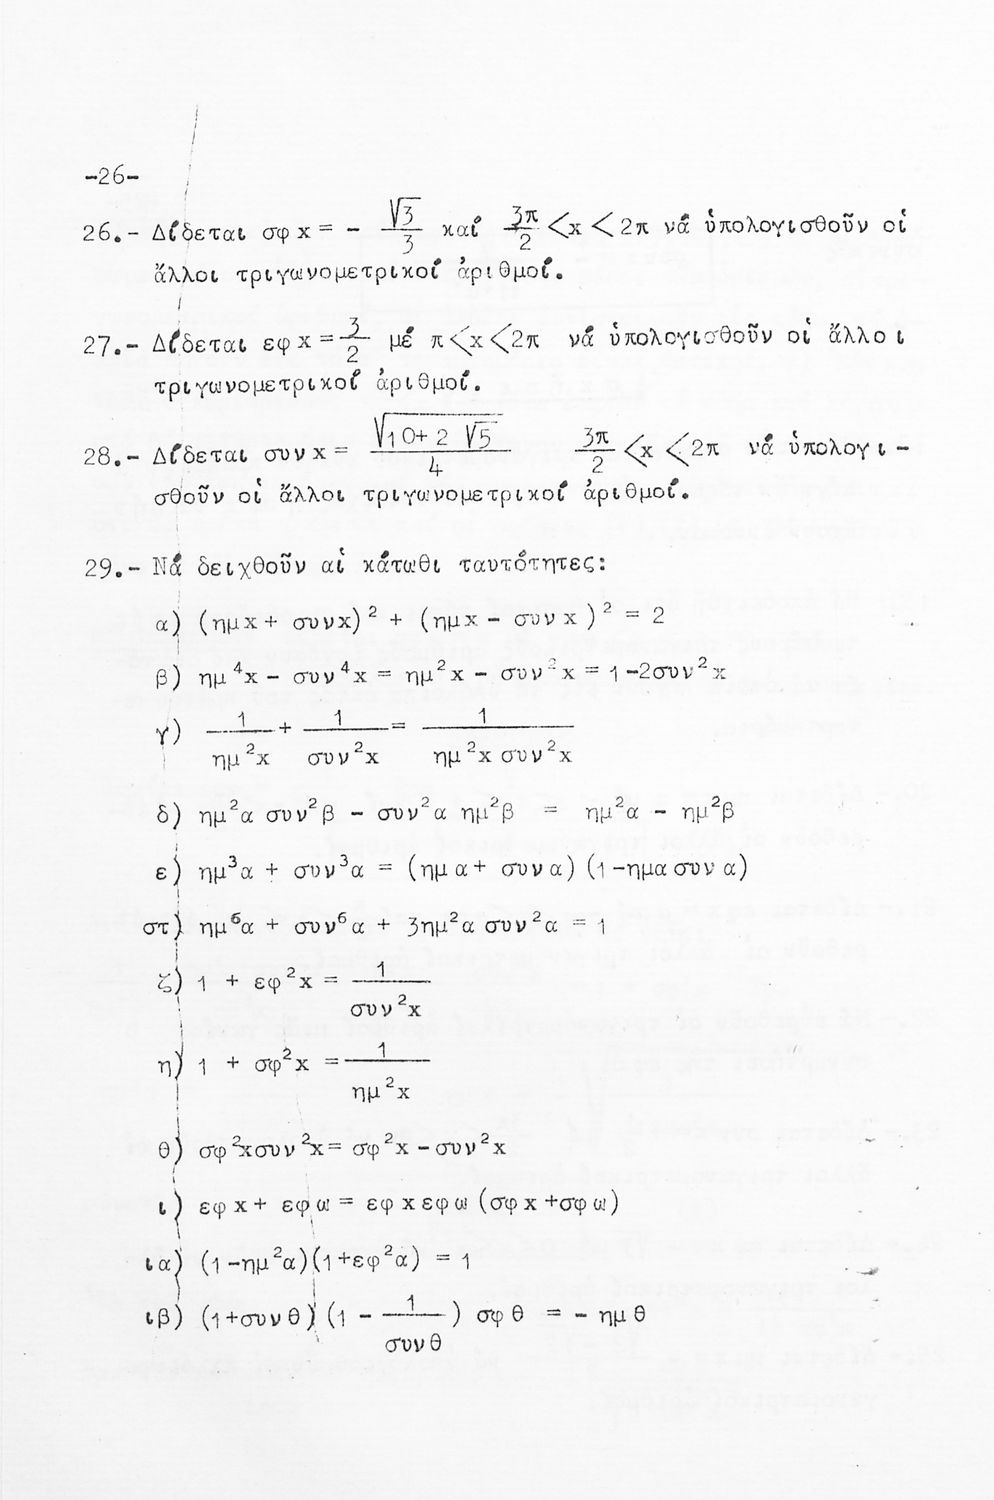 -26-
26.- Δίδεται σφ x = - √3/3 καί 3π/2 < x < 2π νά ὑπολογισθοῦν οἱ
ἄλλοι τριγωνομετρικοί ἀριθμοί.
27.- Δίδεται εφ x = 3/2 μέ π < x < 2π νά ὑπολογισθοῦν οἱ ἄλλοι
τριγωνομετρικοί ἀριθμοί.
28.- Δίδεται συν x = √(10+2√5)/4 3π/2 < x < 2π νά ὑπολογι-
σθοῦν οἱ ἄλλοι τριγωνομετρικοί ἀριθμοί.
29.- Νά δειχθοῦν αἱ κάτωθι ταυτότητες:
α) (ημx + συνx)² + (ημx - συν x)² = 2
β) ημ⁴x - συν⁴x = ημ²x - συν²x = 1-2συν²x
γ) 1/ημ²x + 1/συν²x = 1/ημ²x συν²x
δ) ημ²α συν²β - συν²α ημ²β = ημ²α - ημ²β
ε) ημ³α + συν³α = (ημα + συνα) (1-ημα συν α)
στ) ημ⁶α + συν⁶α + 3ημ²α συν²α = 1
ζ) 1 + εφ²x = 1/συν²x
η) 1 + σφ²x = 1/ημ²x
θ) σφ²xσυν²x = σφ²x - συν²x
ι) εφ x + εφ ω = εφ x εφ ω (σφ x + σφ ω)
ια) (1-ημ²α)(1+εφ²α) = 1
ιβ) (1+συν θ) (1 - 1/συν θ) σφ θ = - ημ θ